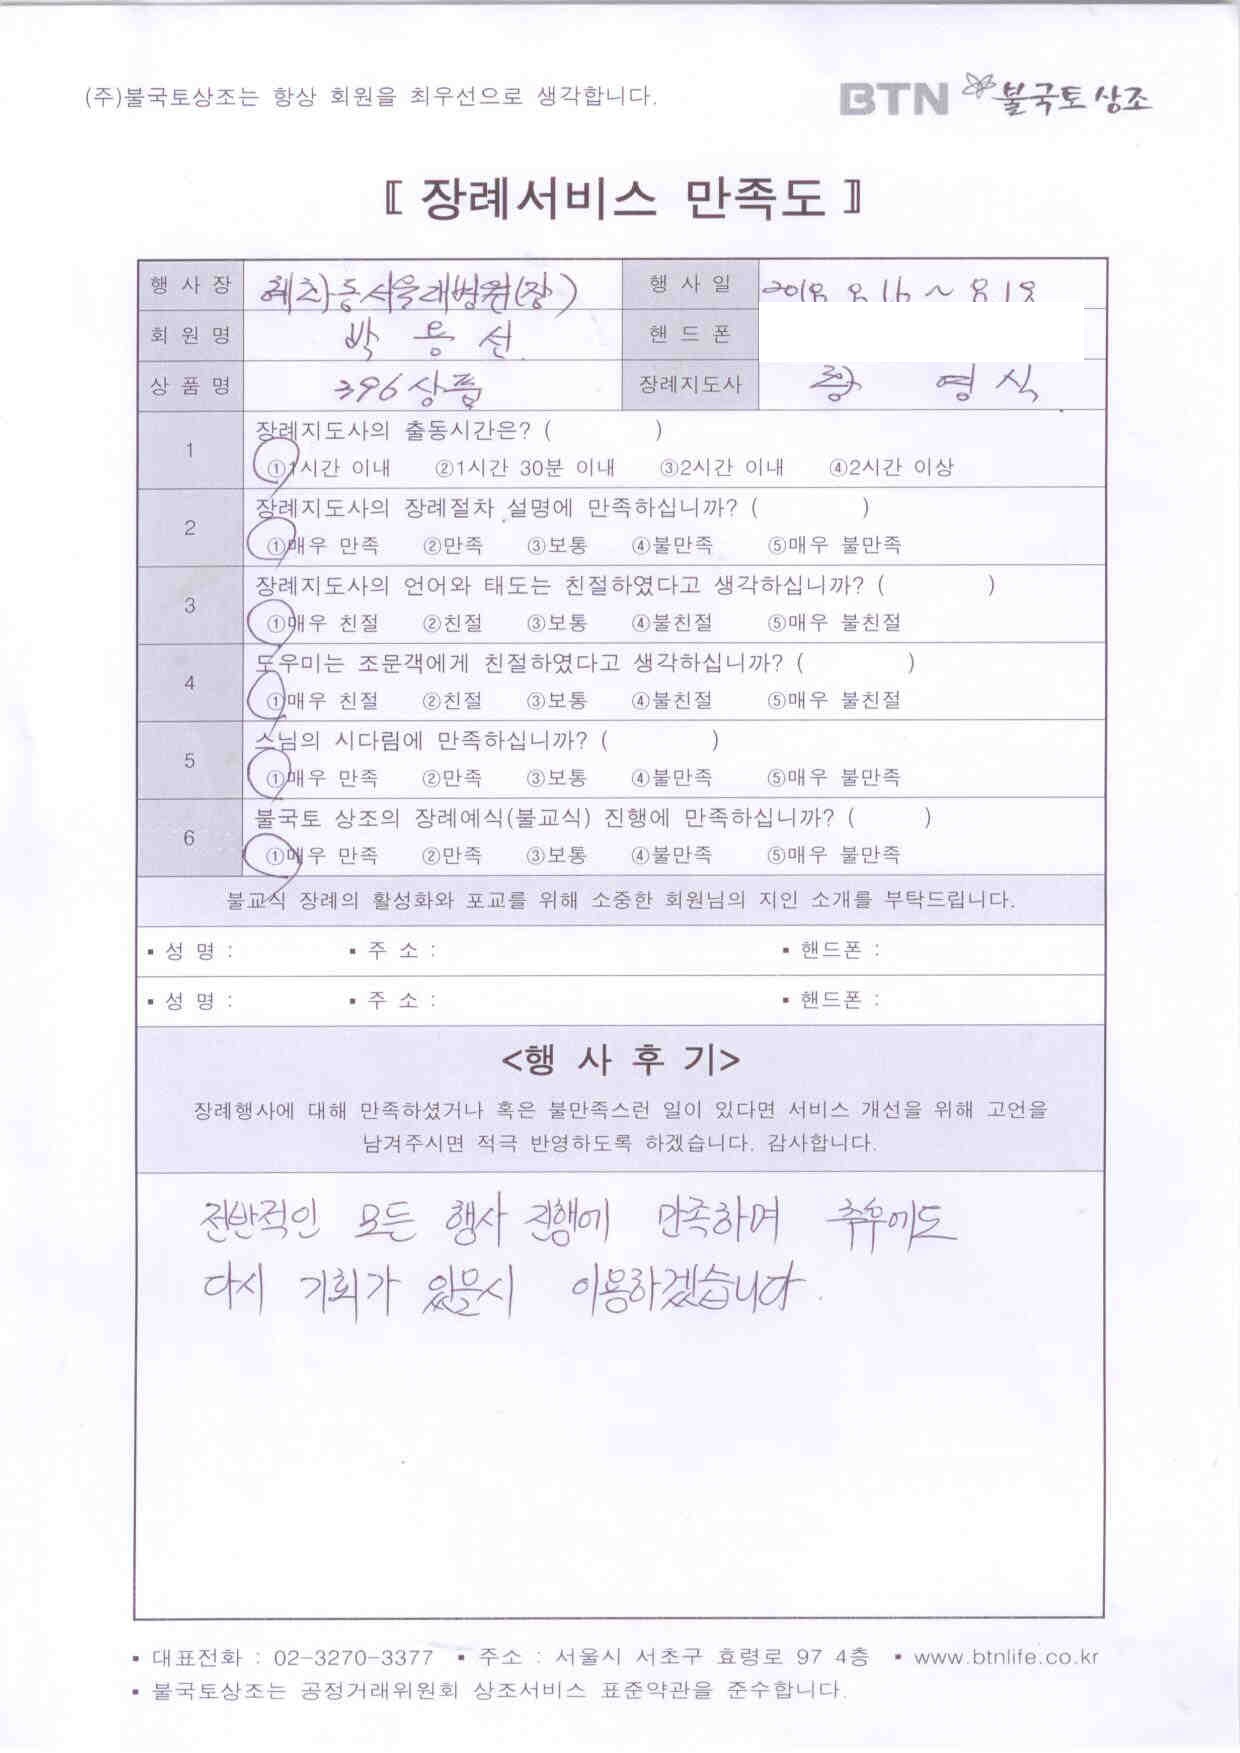 (주)불국토상조는 항상 회원을 최우선으로 생각합니다.
BTN 불국토상조
〖 장례서비스 만족도 〗
행 사 장 혜화동서울대병원(장) 행 사 일 2018. 8. 16 ~ 8. 18
회 원 명 박 용 선 핸 드 폰
상 품 명 396상품 장례지도사 영 식
1 장례지도사의 출동시간은? ( )
①1시간 이내 ②1시간 30분 이내 ③2시간 이내 ④2시간 이상
2 장례지도사의 장례절차 설명에 만족하십니까? ( )
①매우 만족 ②만족 ③보통 ④불만족 ⑤매우 불만족
3 장례지도사의 언어와 태도는 친절하였다고 생각하십니까? ( )
①매우 친절 ②친절 ③보통 ④불친절 ⑤매우 불친절
4 도우미는 조문객에게 친절하였다고 생각하십니까? ( )
①매우 친절 ②친절 ③보통 ④불친절 ⑤매우 불친절
5 스님의 시다림에 만족하십니까? ( )
①매우 만족 ②만족 ③보통 ④불만족 ⑤매우 불만족
6 불국토 상조의 장례예식(불교식) 진행에 만족하십니까? ( )
①매우 만족 ②만족 ③보통 ④불만족 ⑤매우 불만족
불교식 장례의 활성화와 포교를 위해 소중한 회원님의 지인 소개를 부탁드립니다.
▪ 성 명 : ▪ 주 소 : ▪ 핸드폰 :
▪ 성 명 : ▪ 주 소 : ▪ 핸드폰 :
<행 사 후 기>
장례행사에 대해 만족하셨거나 혹은 불만족스런 일이 있다면 서비스 개선을 위해 고언을
남겨주시면 적극 반영하도록 하겠습니다. 감사합니다.
전반적인 모든 행사 진행에 만족하며 추후에도
다시 기회가 있을시 이용하겠습니다.
▪ 대표전화 : 02-3270-3377 ▪ 주소 : 서울시 서초구 효령로 97 4층 ▪ www.btnlife.co.kr
▪ 불국토상조는 공정거래위원회 상조서비스 표준약관을 준수합니다.